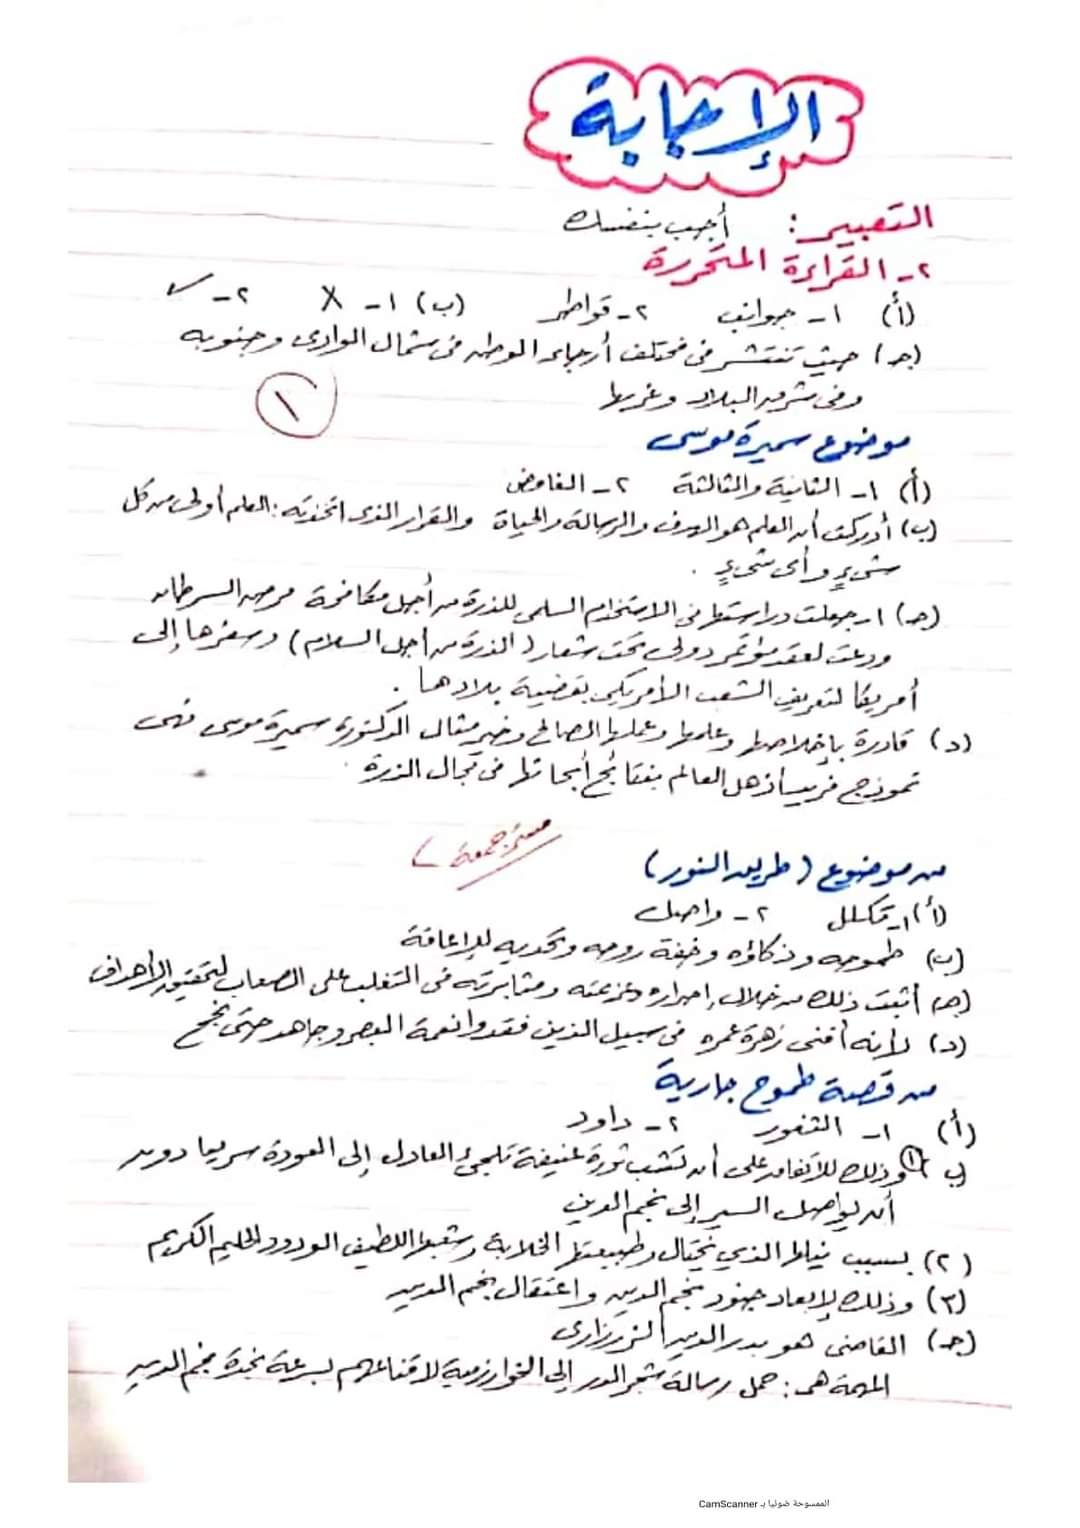 الإجابة
التعبير: أجب بنفسك
٢- القراءة المتحررة
(أ) ١- جوانب ٢- قواطر (ب) ١- X ٢- ✓
(جـ) حيث تنتشر في مختلف أرجاء الوطن في شمال الوادى وجنوبه
وفى شرق البلاد وغربها
١
موضوع سميرة موسى
(أ) ١- الثانية والثالثة ٢- الغامض
(ب) أدركت أن العلم هو الهدف والرسالة والحياة والقرار الذى اتخذته: العلم أولى من كل
شيءٍ وأى شيءٍ .
(جـ) ١- جعلت دراستها فى الاستخدام السلمى للذرة من أجل مكافحة مرض السرطان
ودعت لعقد مؤتمر دولى تحت شعار (الذرة من أجل السلام) وسفرها إلى
أمريكا لتعريف الشعب الأمريكى بقضية بلادها .
(د) قادرة بإخلاصها وعلمها وعملها الصالح وخير مثال الدكتورة سميرة موسى فهى
نموذج فريد أذهل العالم بنتائج أبحاثها فى مجال الذرة .
من موضوع (طريق النور)
(أ) ١- تكلل ٢- واصل
(ب) طموحه وذكاؤه وخفة روحه وتحديه للإعاقة
(جـ) أثبت ذلك من خلال إصراره وعزيمته ومثابرته فى التغلب على الصعاب لتحقيق الأهداف
(د) لأنه أفنى زهرة عمره فى سبيل الذين فقدوا نعمة البصر وجاهد حتى نجح
من قصة طموح جارية
(أ) ١- الثغور ٢- داود
(ب) ١ وذلك للاتفاق على أن تشب ثورة عنيفة تلجئ العادل إلى العودة سريعا دون
أن يواصل السير إلى نجم الدين
(٢) بسبب نيلها الذي يختال وطبيعتها الخلابة وشعبها اللطيف الودود الحليم الكريم
(٣) وذلك لإبعاد جنود نجم الدين واعتقال نجم الدين
(جـ) القاضى هو بدر الدين الزرزارى
المهمة هى: حمل رسالة شجر الدر إلى الخوارزمية لاقناعهم بسرعة نجدة نجم الدين
الممسوحة ضوئيا بـ CamScanner